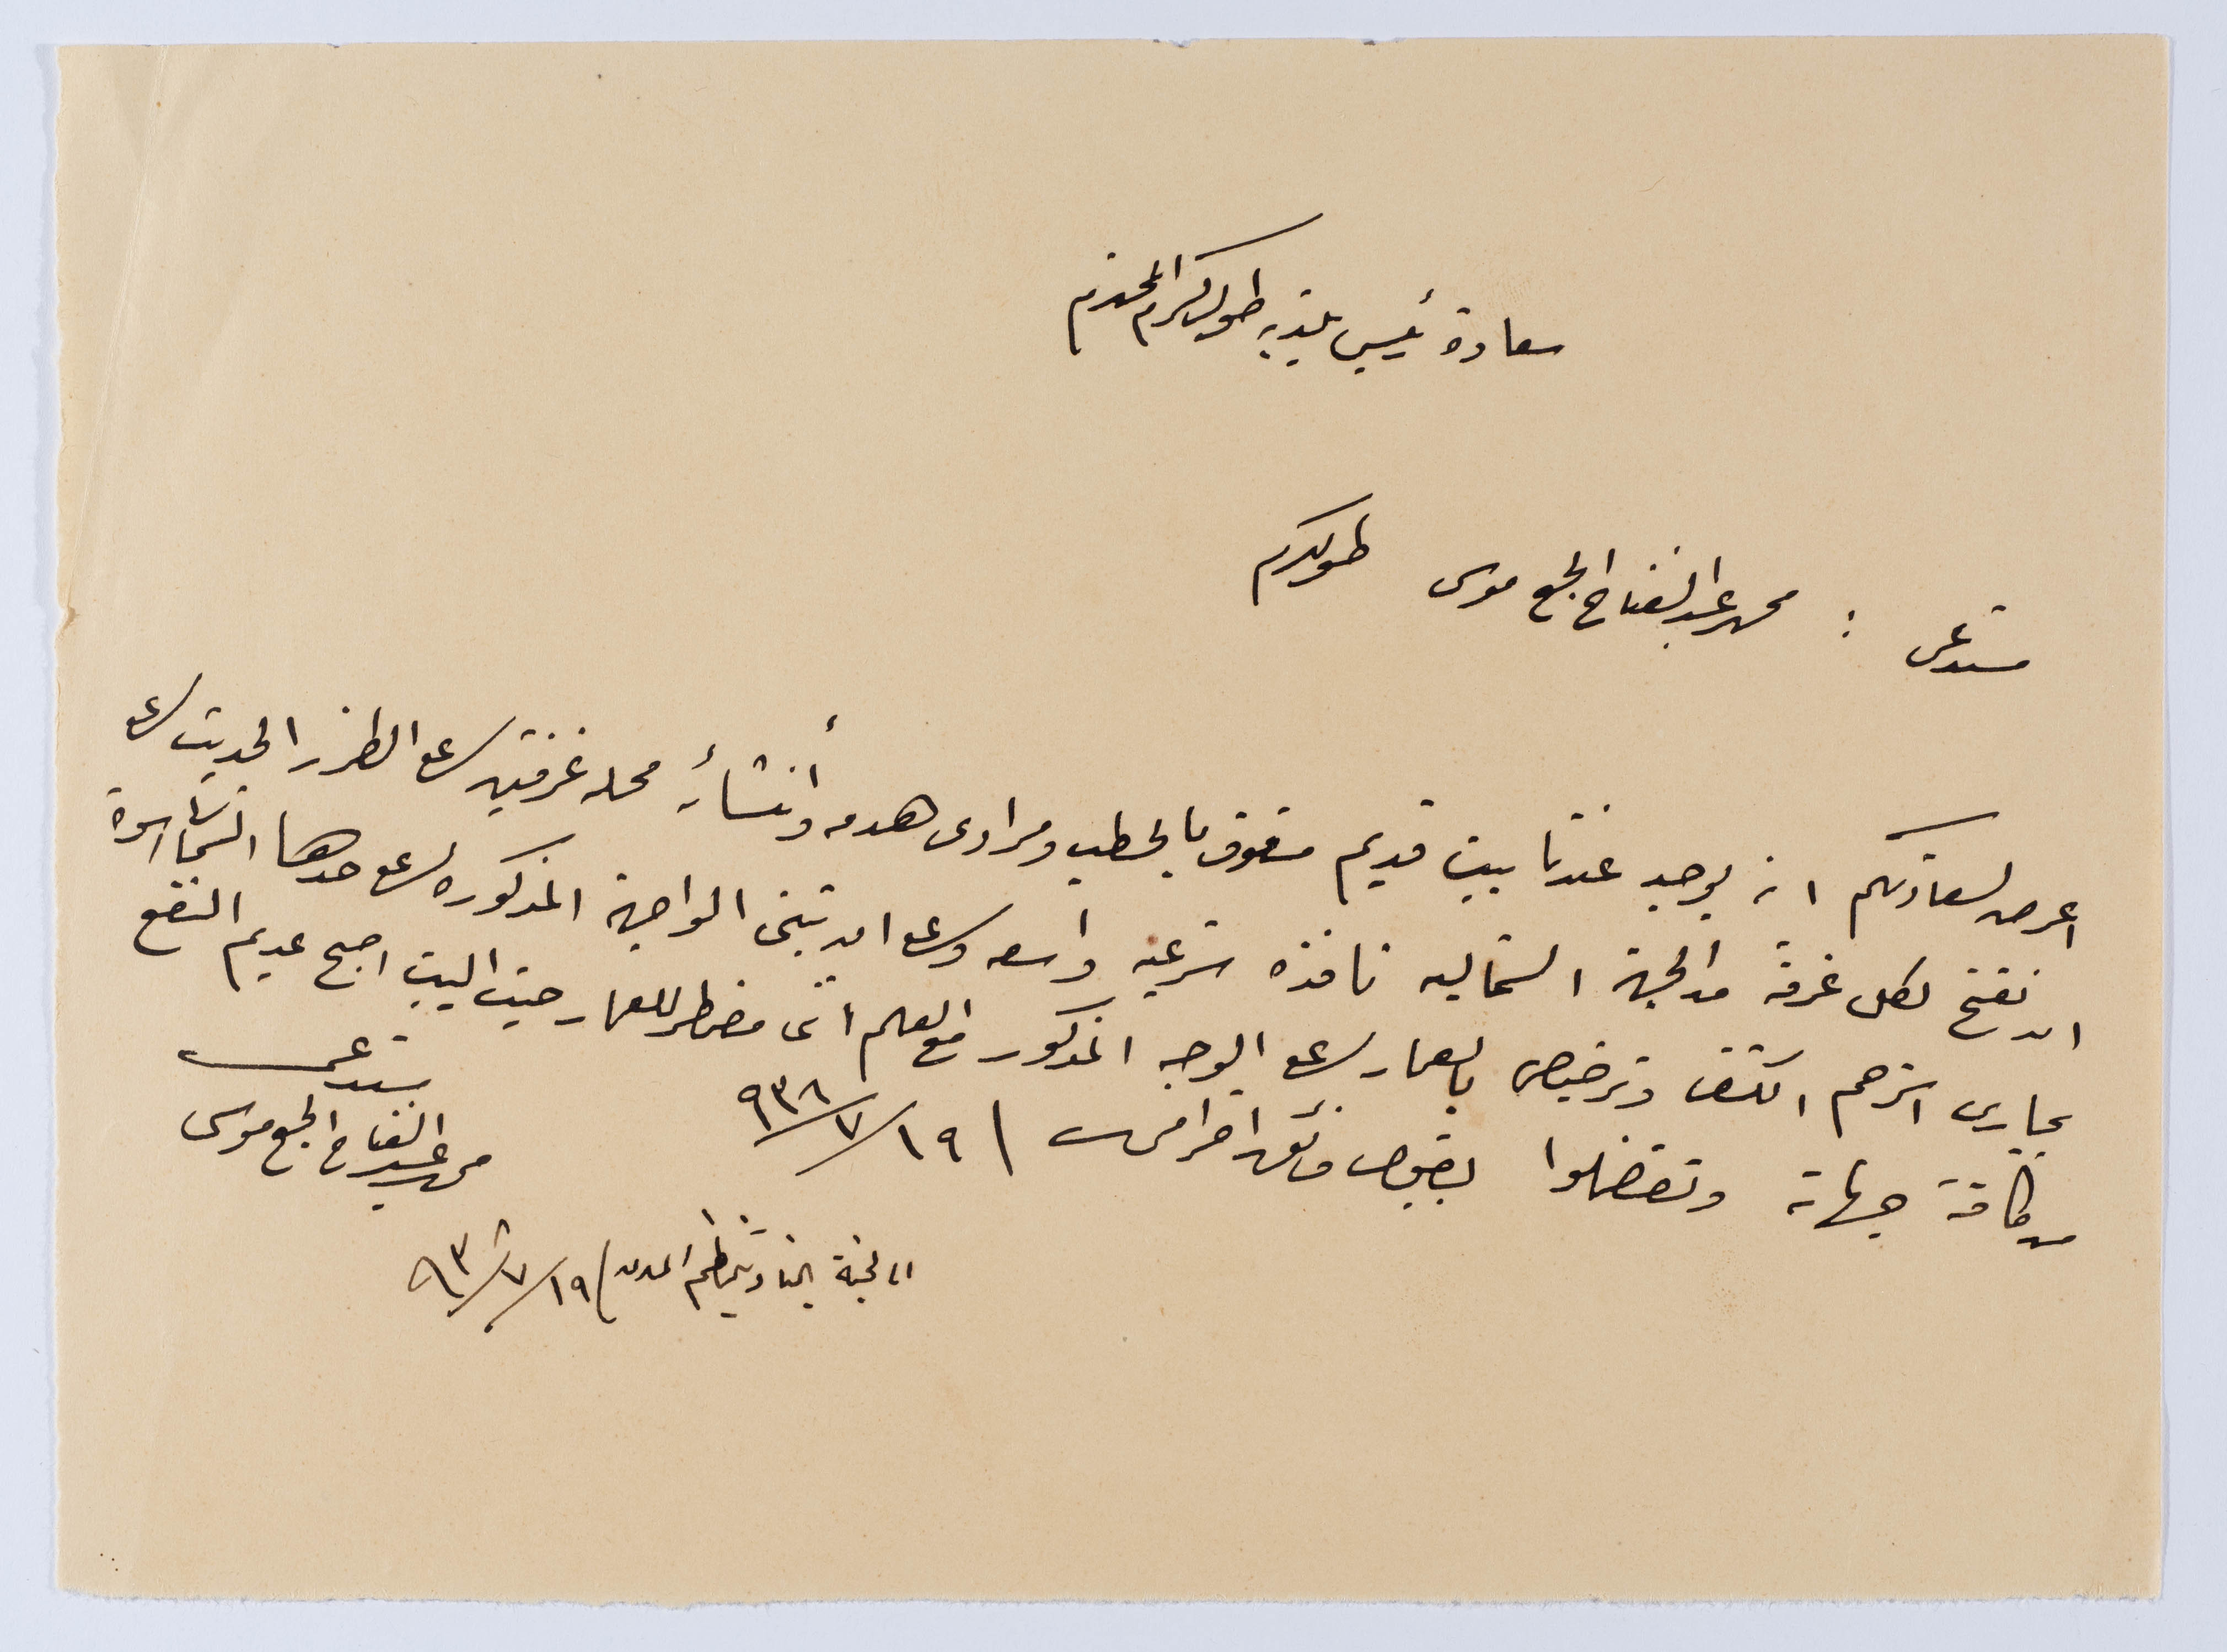 سعادة رئيس بلدية طولكرم المحترم
مستدعى : محمد عبد الفتاح الحج موسى طولكرم
اعرض لسعادتكم انه يوجد عندنا بيت قديم مسقوف بالحطب ومرادى هدمه وأنشأ محله غرفتين على الطراز الحديث على
ان نفتح لكل غرفة من الجهة الشمالية نافذه شرعيه واسعه وعلى ان تبنى الواجهة المذكوره على حدها الشمالى اسوة
بجارى استرحم الكشف وترخيص بالعمار على الوجه المذكور مع العلم انى مضطر للعمار حيث البيت اصبح عديم النفع
من كافة جهاته وتفضلوا بقبول فائق احترامى ١٩/٧/٩٣٨
مستدعى
محمد عبد الفتاح الحج موسى
الى لجنة البناء وتنظيم المدن ١٩/٧/٩٣٨